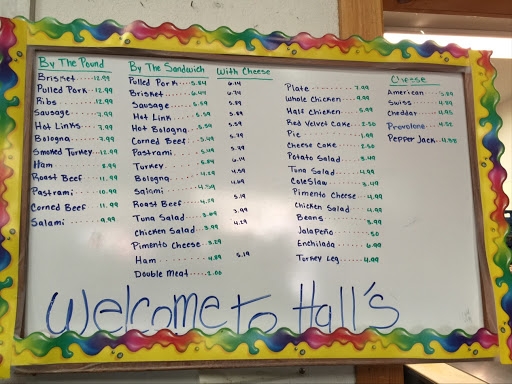 By The Pound
Brisket....12.99
Pulled Pork..12.99
Ribs........12.99
Sausage......7.99
Hot Links....7.99
Bologna......7.99
Smoked Turkey..12.99
Ham.........8.99
Roast Beef....11.99
Pastrami.....10.99
Corned Beef..11.99
Salami......9.99
By The Sandwich With Cheese
Pulled Pork 6.14
Brisket 6.49 6.74
Sausage 5.59 5.89
Hot Link 5.59 5.89
Hot Bologna 5.89
Corned Beef 5.49 5.79
Pastrami 5.49 5.79
Turkey 6.14
Bologna 4.29 4.59
Salami 4.59
Roast Beef 5.19
Tuna Salad 3.99
Chicken Salad 3.99 4.29
Pimento Cheese 3.29
Ham 4.89 5.19
Double Meat 2.00
Plate 7.99
Whole Chicken 9.99
Half Chicken 5.99
Red Velvet Cake 2.50
Pie 1.99
Cheese Cake 2.50
Potato Salad 3.49
Tuna Salad 4.99
Cole Slaw 3.49
Pimento Cheese 4.99
Chicken Salad 4.99
Beans 3.99
Jalapeño .50
Enchilada 6.99
Turkey Leg 4.99
Cheese
American
Swiss
Cheddar
Provolone
Pepper Jack
Welcome to Hall's